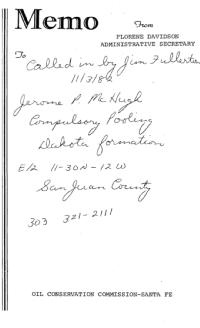 Memo
From
FLORENE DAVIDSON
ADMINISTRATIVE SECRETARY
To
Called in by Jim Fullerton
11/3/82
Jerome P. McHugh
Compulsory Pooling
Dakota formation
E/2 11-30N-12W
San Juan County
303 321-2111
OIL CONSERVATION COMMISSION-SANTA FE